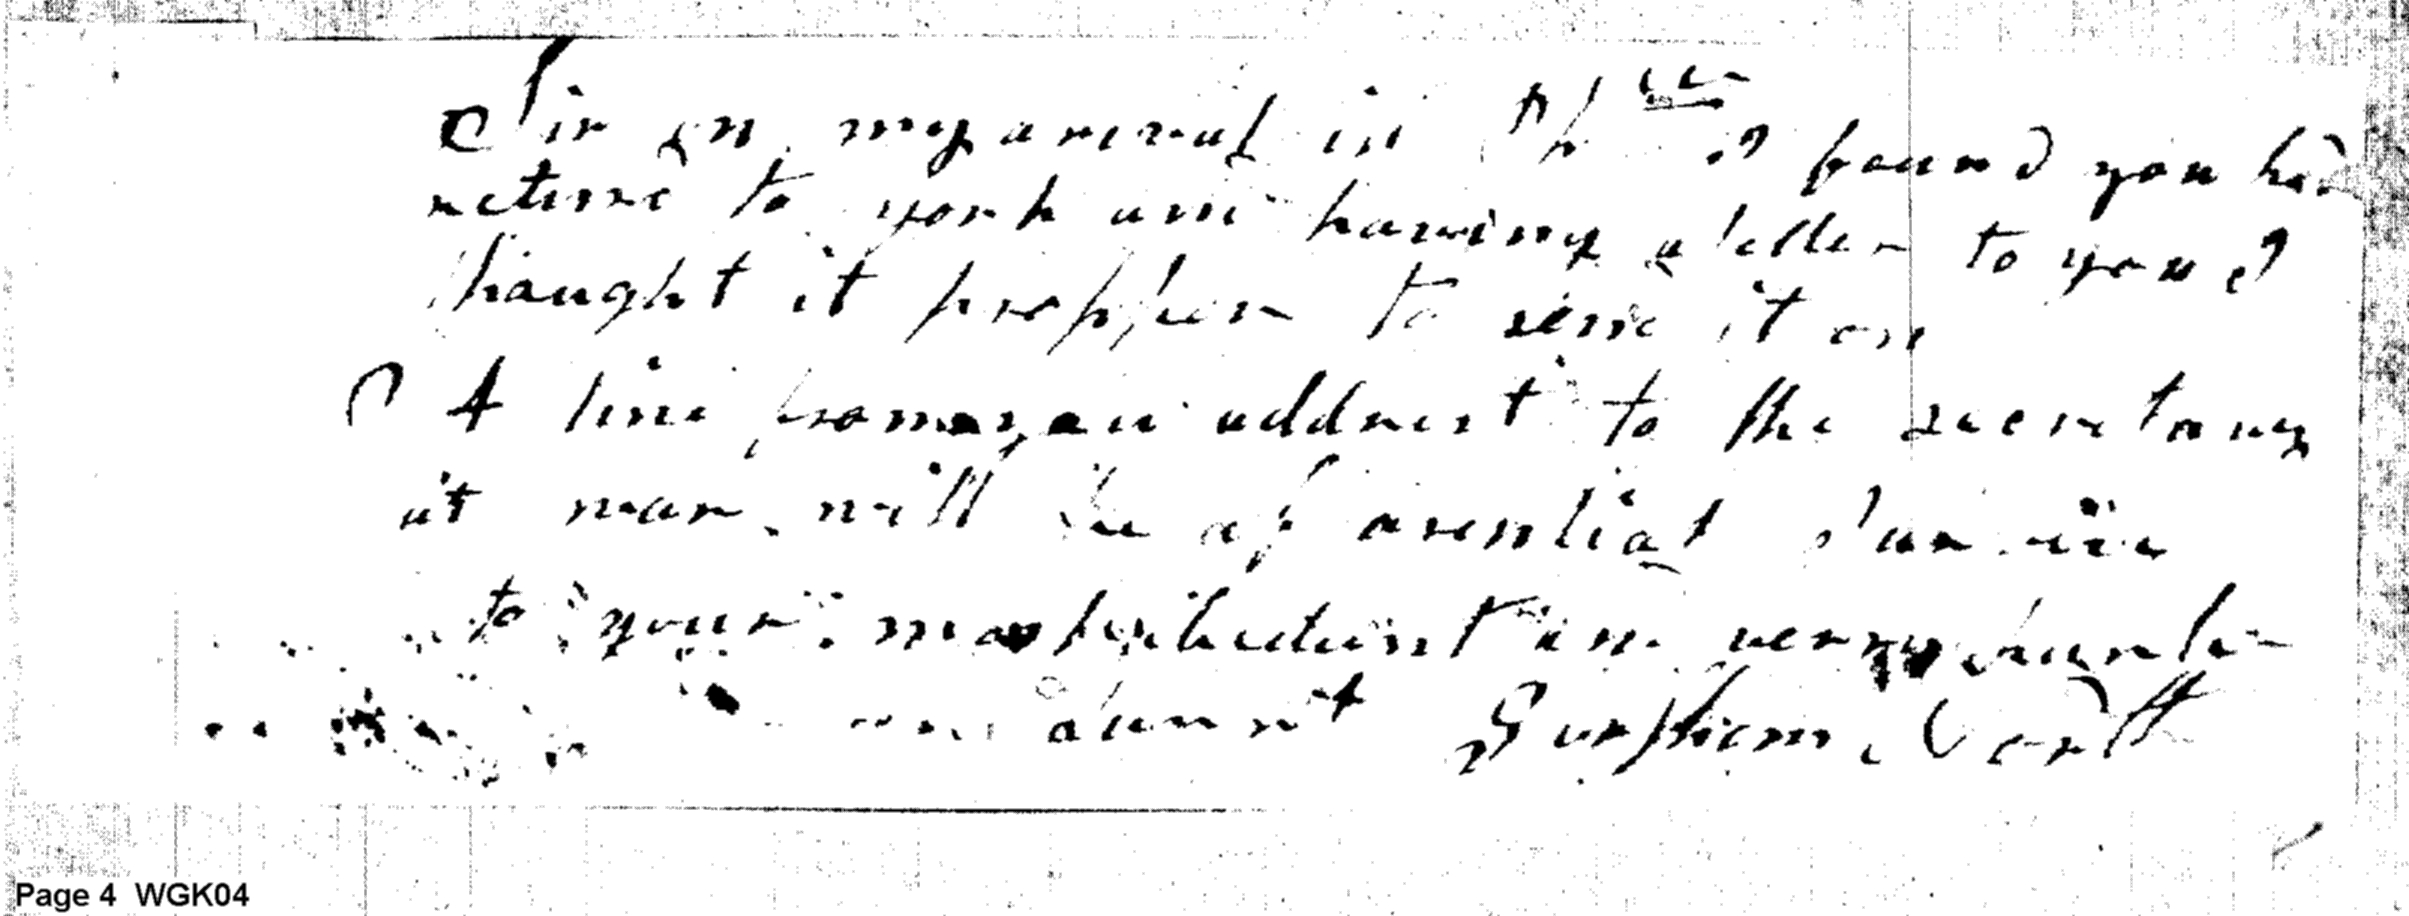 Sir on my arival in Ph I found you had
returnd to york and having a letter to you I
thought it propper to send it on
A line from you addrest to the secretary
at war will be of asential Service
to your most obediant and verry humble
Servant
Page 4 WGK04